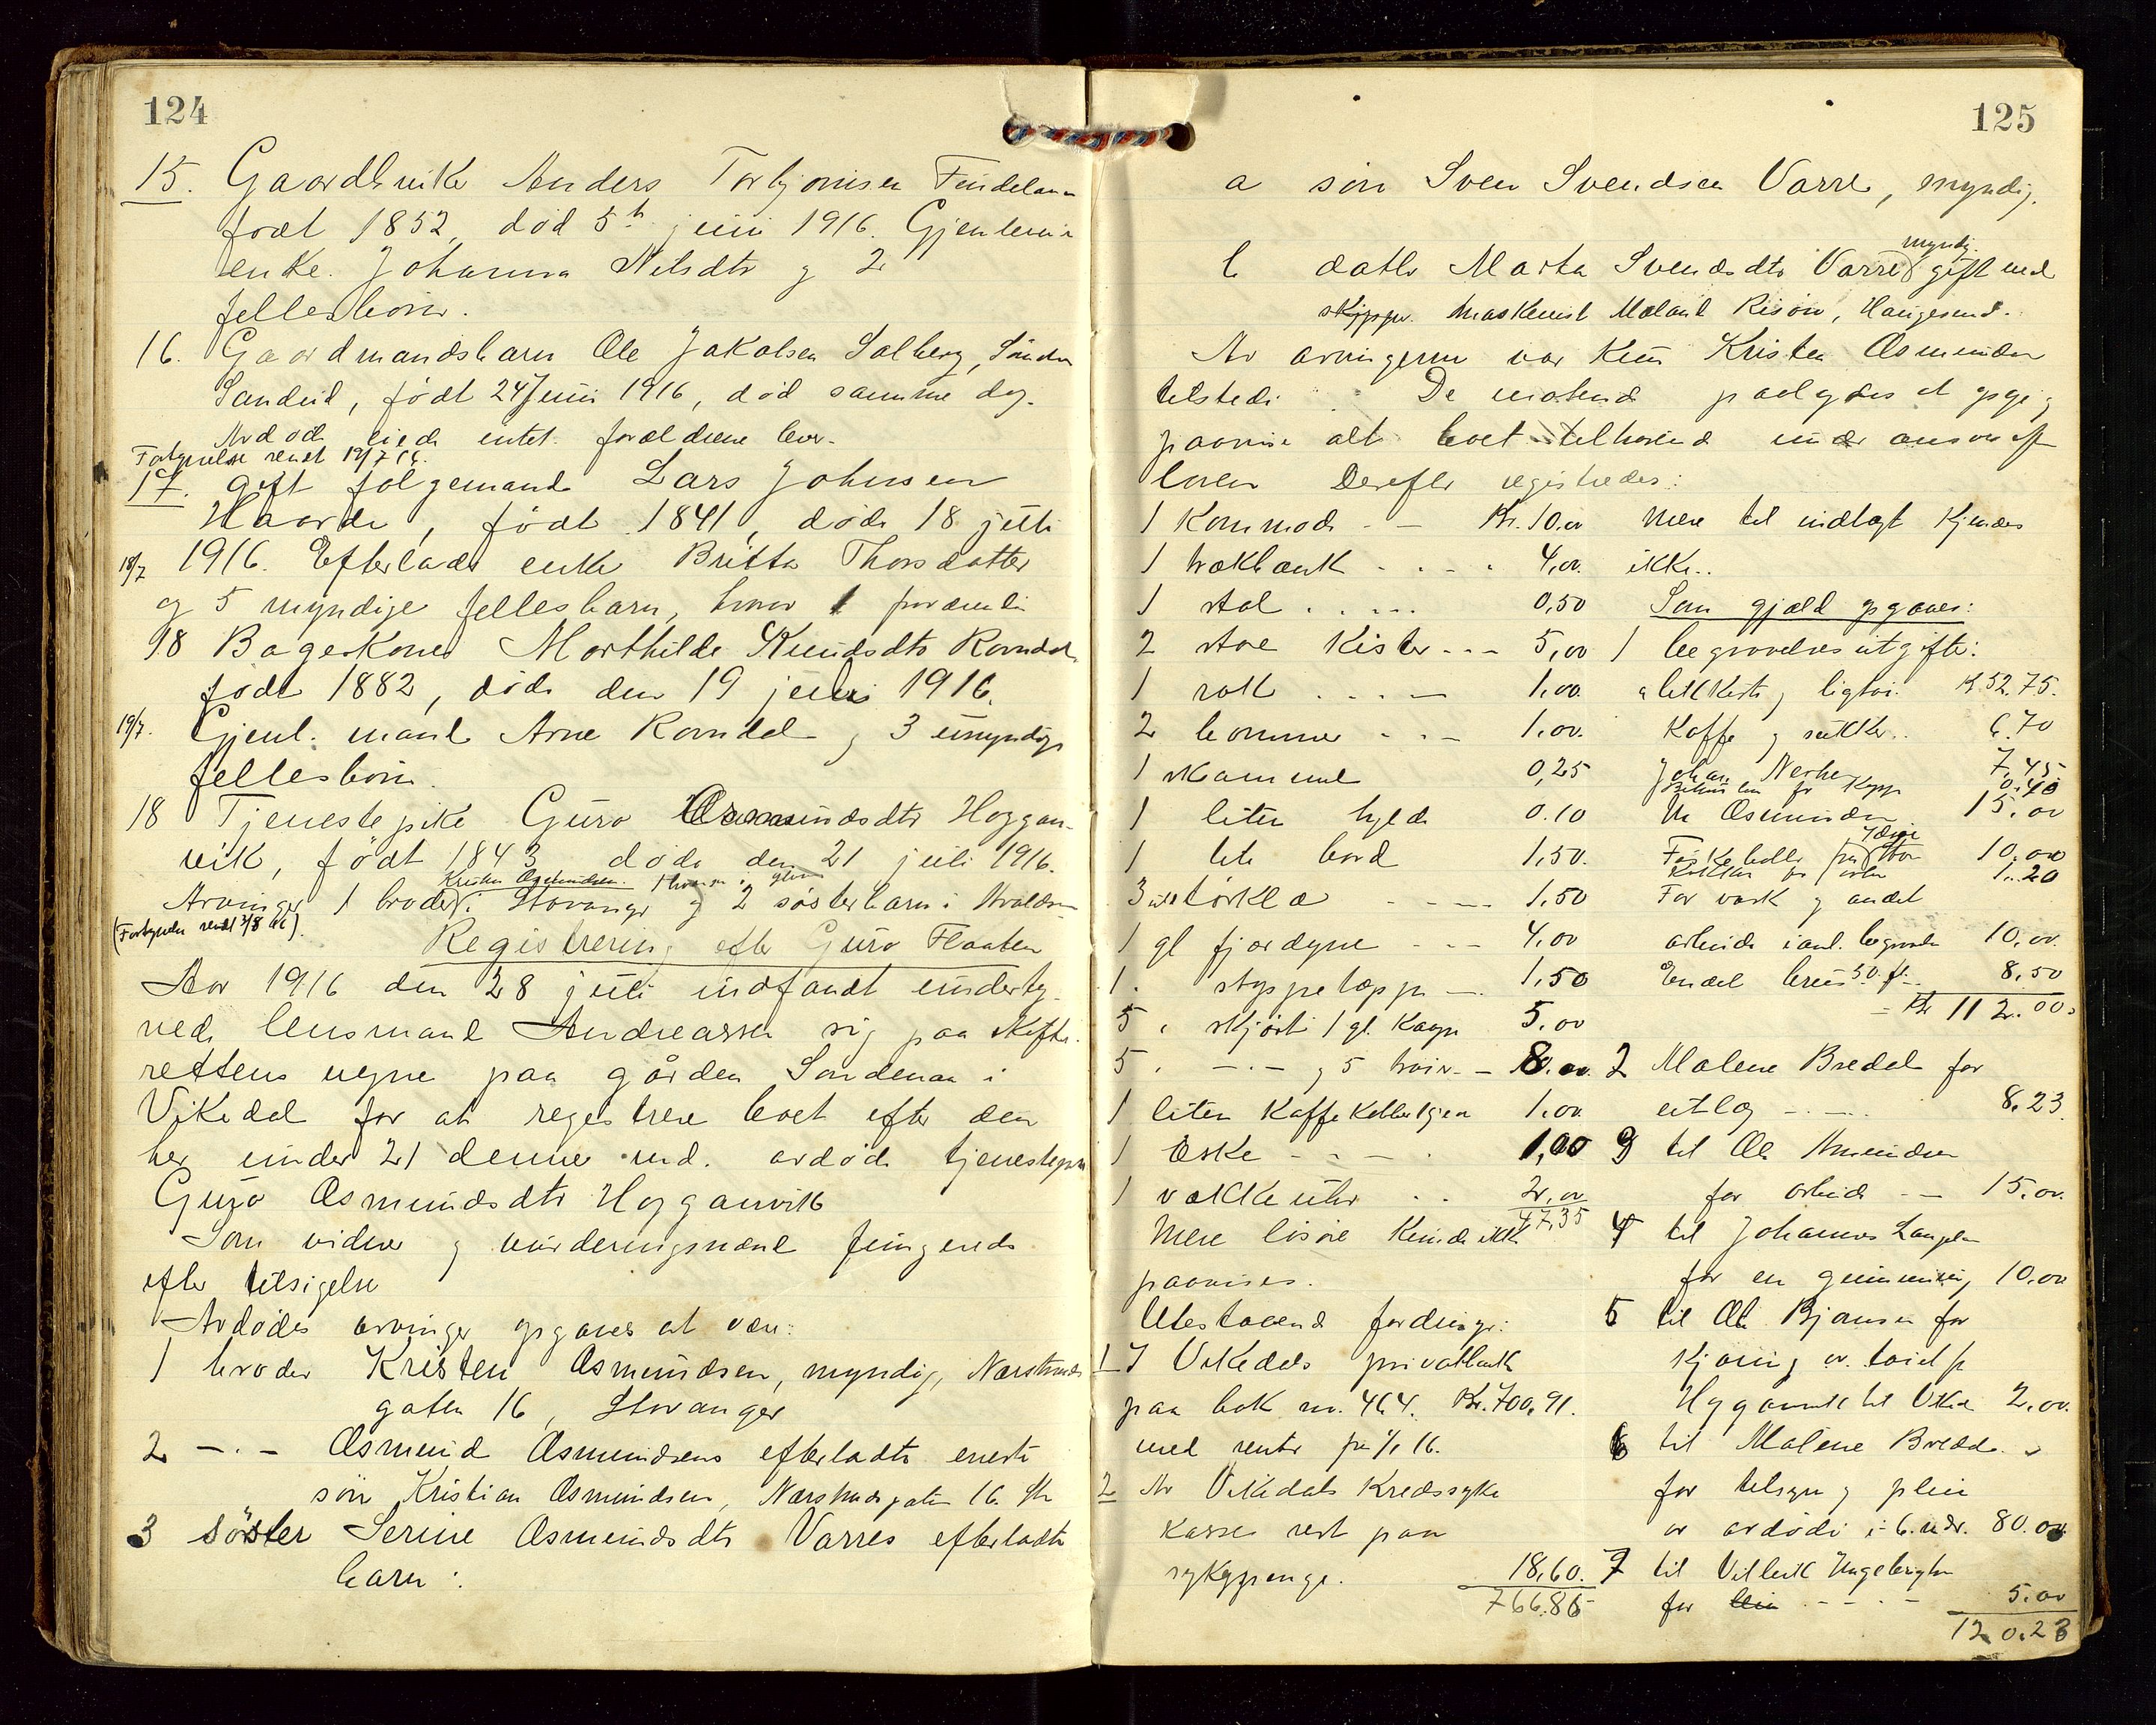 124
15. Gaardbruker Anders Torbjornsen Findeland
født 1852, død 5te juni 1916. Gjenlevende
enke. Johanna Nilsdtr og 2
fellesbørn.
16. Gaardmandsbarn Ole Jakobsen Salberg, Søndre
Sandeid, født 24 Juni 1916, død samme dag.
Avdøde eiede intet. forældrene lever.
Fortegnelse sendt 19/7 16.
17. gift følgemand Lars Johnsen
Haarde, født 1841, døde 18 juli
18/7 1916. Efterlader enke Britta Thorsdatter
og 5 myndige fellesbarn, hvorav 1
18 Bagerkone Marthilde Knudsdtr Ravndal
født 1882, døde den 19 juli 1916.
19/7. Gjenl. mand Arne Ravndal og 3 umyndige
fellesbørn.
18 Tjenestepike Guro Osmundsdtr Hoggan-
vik, født 1843 døde den 21 juli 1916.
Kristen Osmundsen.
Arvinger 1 broder i Stavanger og 2 søsterbarn i
(Fortegnelse sendt 3/8 16).
Registrering efter Guro Flaaten
Aar 1916 den 28 juli indfandt underteg-
nede lensmand Andreassen sig paa skifte-
rettens vegne paa gården Søndenaa i
Vikedal for at registrere boet efter den
her under 21 denne md. avdøde tjenestepike
Guro Osmundsdtr Hogganvik
Som vidner og vurderingsmænd fungerede
efter tilsigelse
Avdødes arvinger opgaves at være:
1 broder Kristen Osmundsen, myndig,
gaten 16, Stavanger
2 -·- Osmund Osmundsens efterladte eneste
søn Kristian Osmundsen, 16.
3 søster Serine Osmundsdtr Varres efterladte
barn:
125
a søn Sven Svendsen Varre, myndig.
myndig.
b datter Marta Svendsdtr Varre gift med
skipper. maskinist Risøen, Haugesund.
Av arvingerne var kun Kristen Osmundsen
tilstede. De møtende paalagdes at opgi og
paavise alt boet tilhørende under ansvar efter
loven Derefter registredes:
1 Kommode - - Kr. 10.00
1 trækbænk - - - - 4,00.
1 stol . . . . . 0,50
2 store Kister - - - 5,00
1 rok . . . . - 1,00.
2 tommer - - - 1.00.
1 skammel 0,25
1 liten hylde 0.10
1 lite bord 1,50.
3 tørklæ - - - - 1,50
1 gl fjærdyne - - - 4,00
1. styppetæppe - 1,50
5 " skjørt 1 gl. Kaape 5.00
5 " -·- og 5 - 8.00.
1 liten Kaffekobberkjen 1,00
1 Eske - - - - 1,00
1 vækkeuhr . . 2,00
47,35
Mere løsøre kunde ikke
paavises.
Utestaaende fordringer:
1 I Vikedals privatbank
paa bok nr. 464. Kr. 700,91.
med renter fra 1/1 16.
2 Av Vikedals Kredssyke
kasse rest paa
sykepenge. 18,60.
766.86
Mere til indtægt kjendes
ikke.
Som gjæld opgaves:
1 begravelsesutgifter:
a likkiste og ligtøi. Kr. 52.75.
Kaffe og sukker.. 6.70
Johan Nerhe 7,45
0.40
M Osmundsen 15.00
10.00
1.20
For vask og andet
arbeide i anl. begravelsen 10,00.
Endel brus 50 fl. 8,50
= Kr 112.00
2 Malene Bredal for
utlæg - - - 8.23
3 til Ole Amundsen
for arbeide - - 15.00.
4 til Johannes Langeland
for en 10.00
5 til Ole Bjørnsen for
kjøring av tøiet fra
Hogganvik til Vikedal 2.00.
6 til Malene Bredal
for tilsyn og pleie
av avdøde i 6. mdr. 80.00
7 til Vilhelm Ingebrigtsen
for - - - - 5.00
120.23